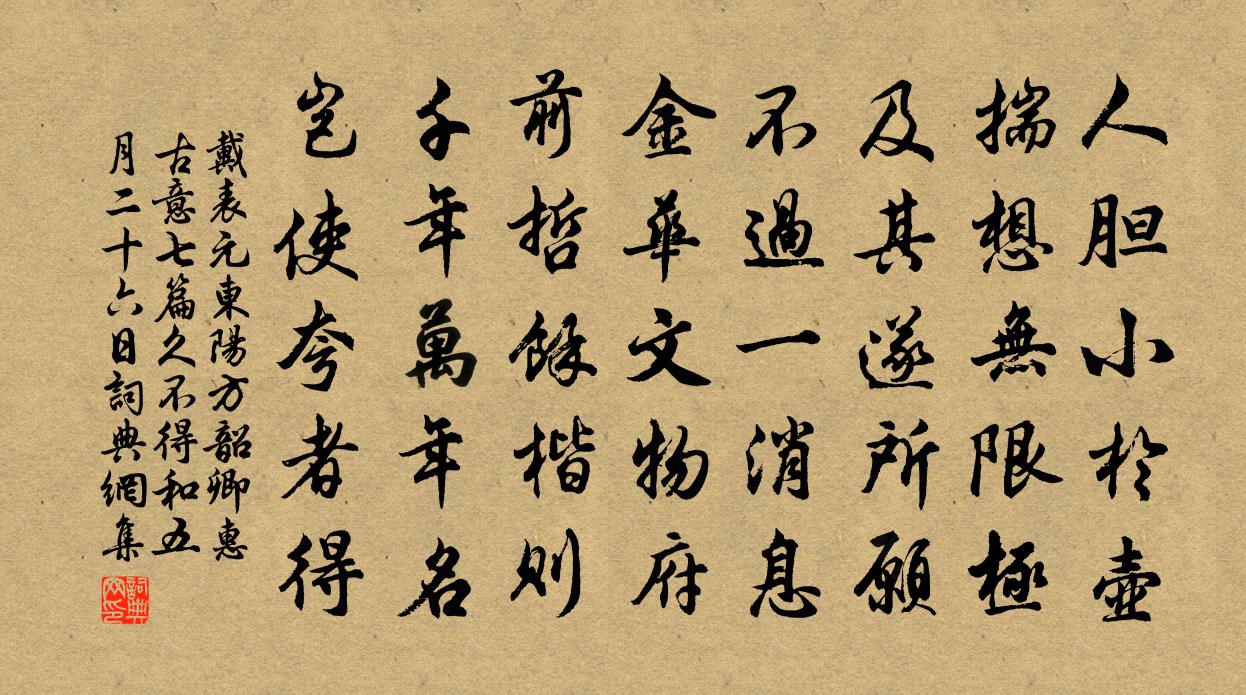 人胆小於壺
揣想無限極
及其遂所願
不過一消息
金華文物府
前哲餘楷則
千年萬年名
豈使夸者得
戴表元東陽方韶卿惠
古意七篇久不得和五
月二十六日詞典網集
詞典網印